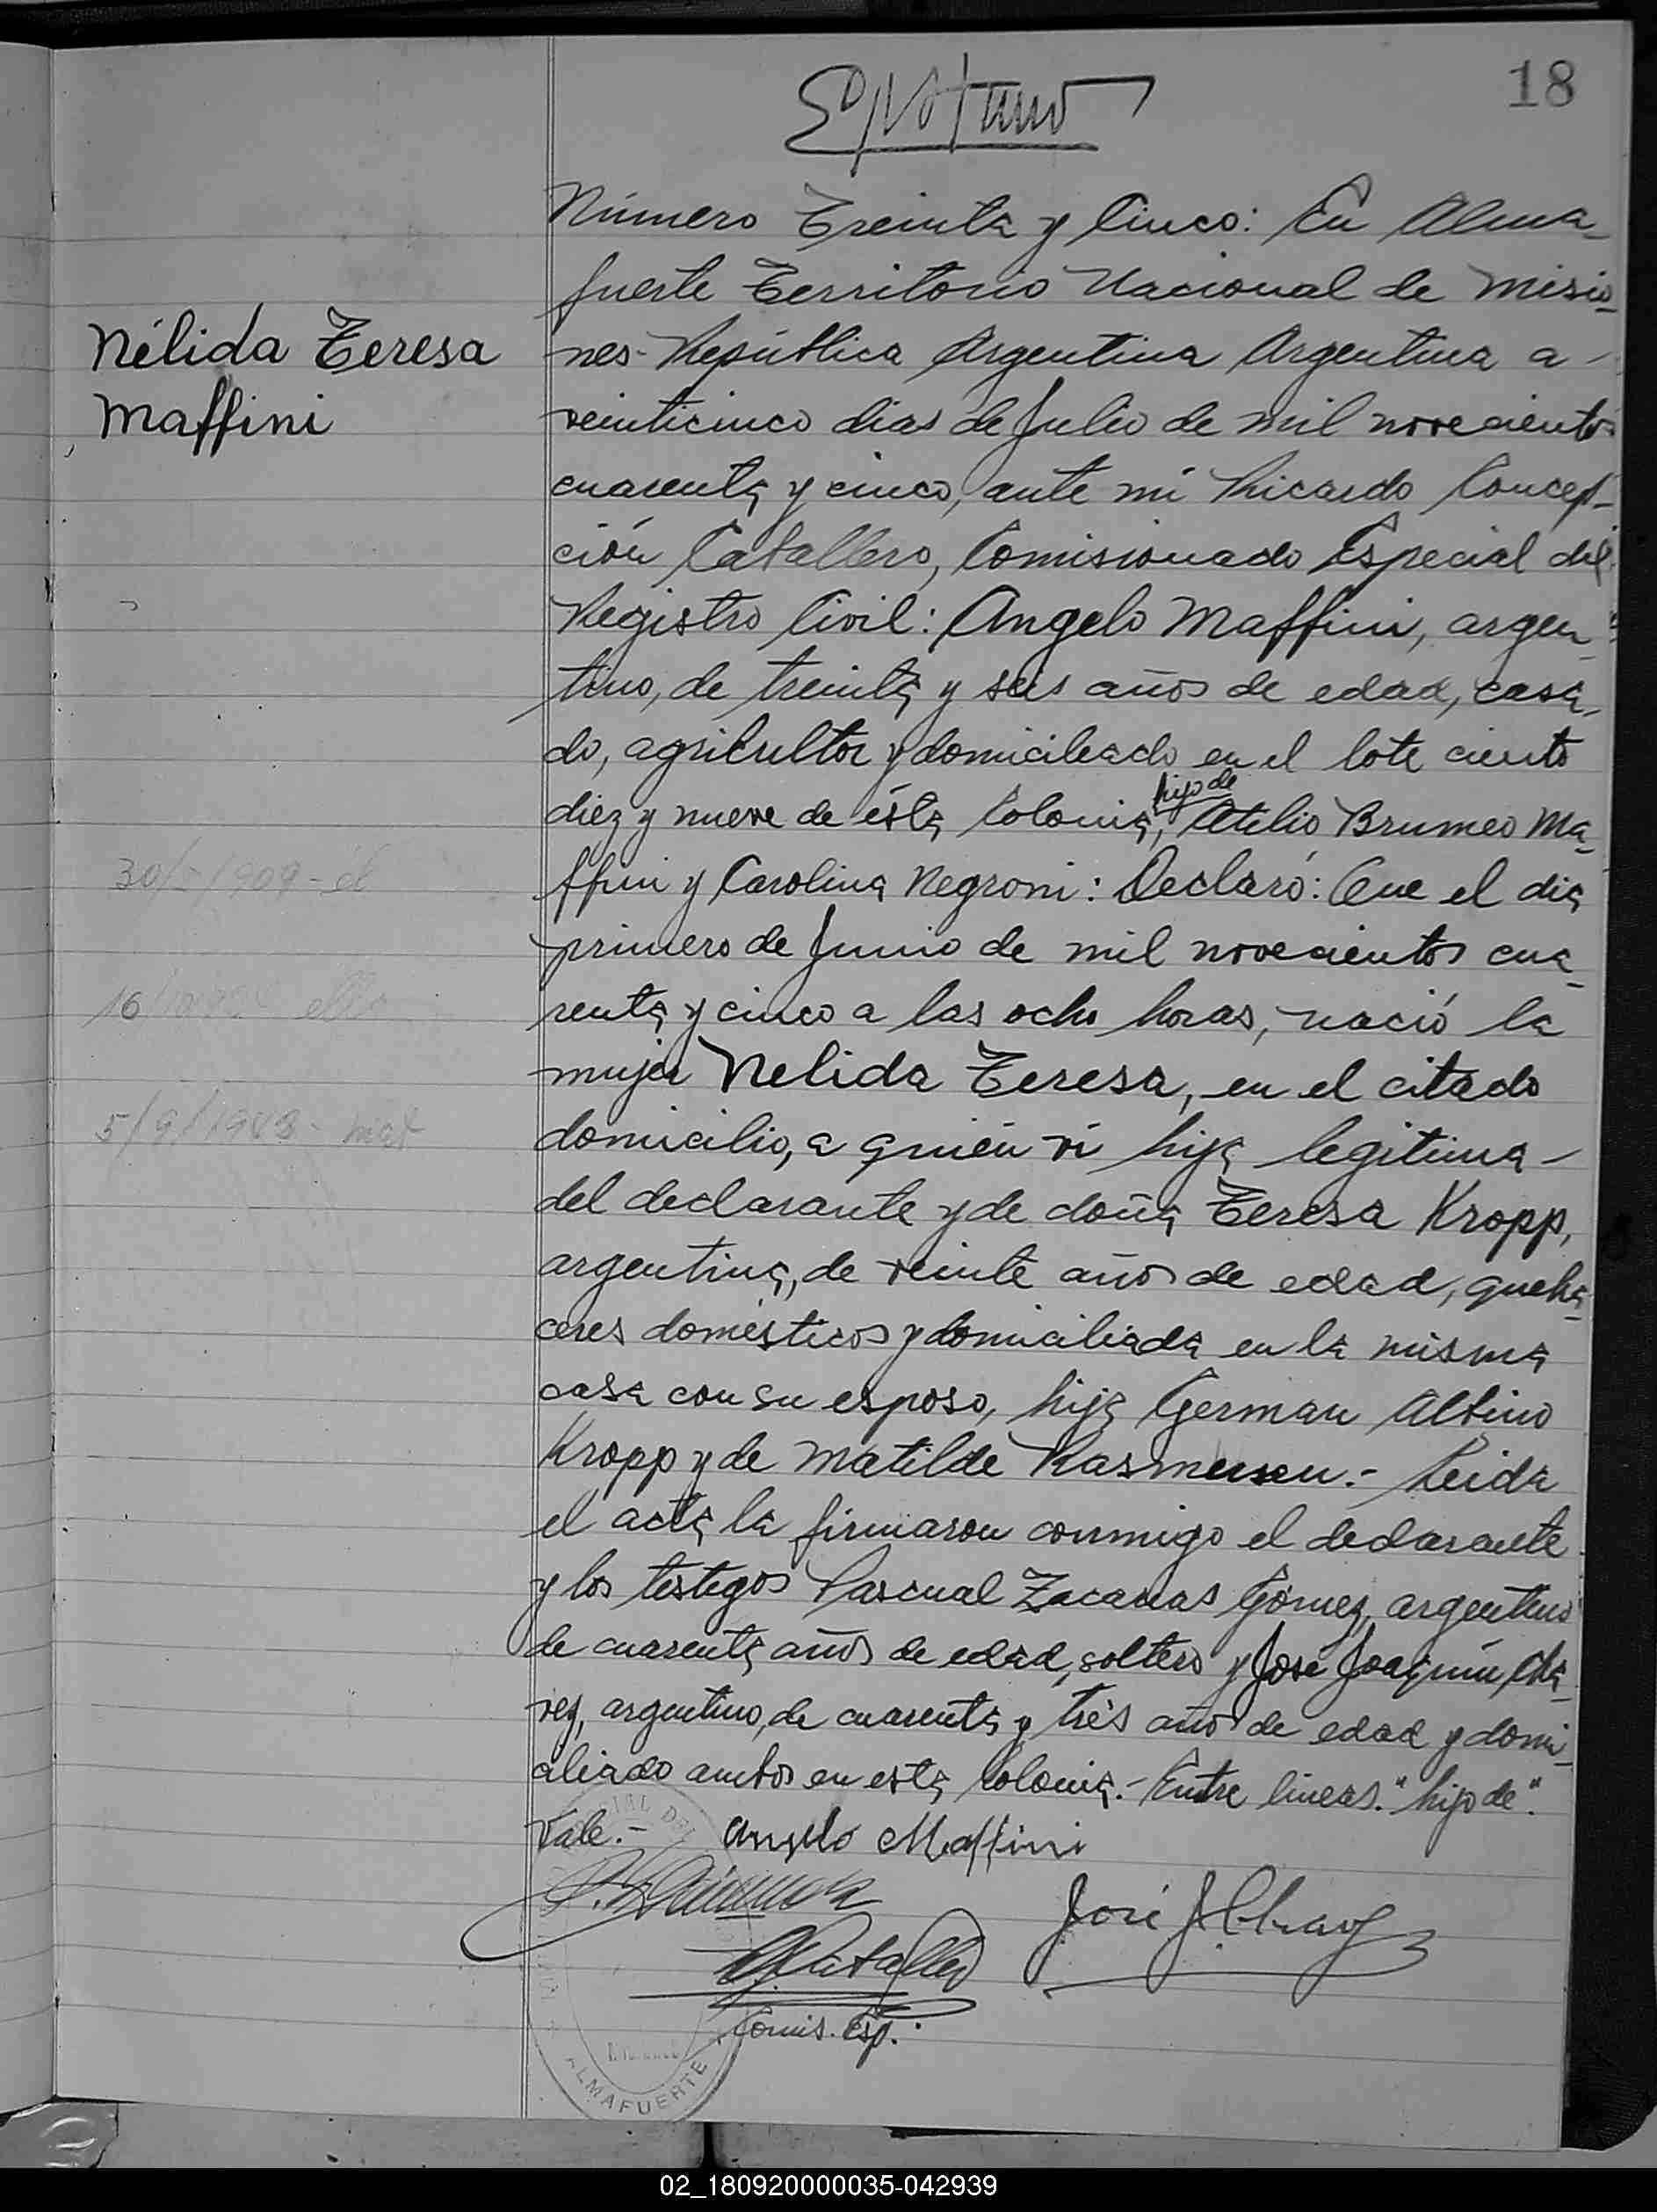 18
Número Treinta y Cinco: En Alma-
fuerte Territorio Nacional de Misio-
nes República Argentina Argentina a -
veinticinco dias de Julio de mil novecientos
cuarenta y cinco, ante mi Ricardo Concep-
ción Caballero, Comisionado Especial del
Registro Civil: Angelo Maffini, argen-
tino, de treinta y seis años de edad, casa-
do, agricultor y domiciliado en el lote ciento
hijo de
diez y nueve de ésta Colonia, Atilio Brumeo Ma-
ffini y Carolina Negroni: Declaró: Que el dia
primero de Junio de mil novecientos cua-
renta y cinco a las ocho horas, nació la
mujer Nelida Teresa, en el citado
domicilio, a quién ví hija legitima -
del declarante y de doña Teresa Kropp,
argentina, de veinte años de edad, queha-
ceres domésticos y domiciliada en la misma
casa con su esposo, hija German Albino
Kropp y de Matilde Rasmussen.- Leida
el acta la firmaron conmigo el declarante
y los testigos Pascual Zacarias Gómez, argentino
de cuarenta años de edad, soltero y José Joaquín Cha-
vez, argentino, de cuarenta y trés año de edad y domi-
ciliado ambos en esta Colonia.- Entre lineas. "hijo de".
Vale.- Angelo Maffini
José J. Chavez
RCaballero
Comis. Esp.
ALMAFUERTE
Nélida Teresa
Maffini
30/ /1909 - él
16 ella
5/9/1943 - mat
02_180920000035-042939